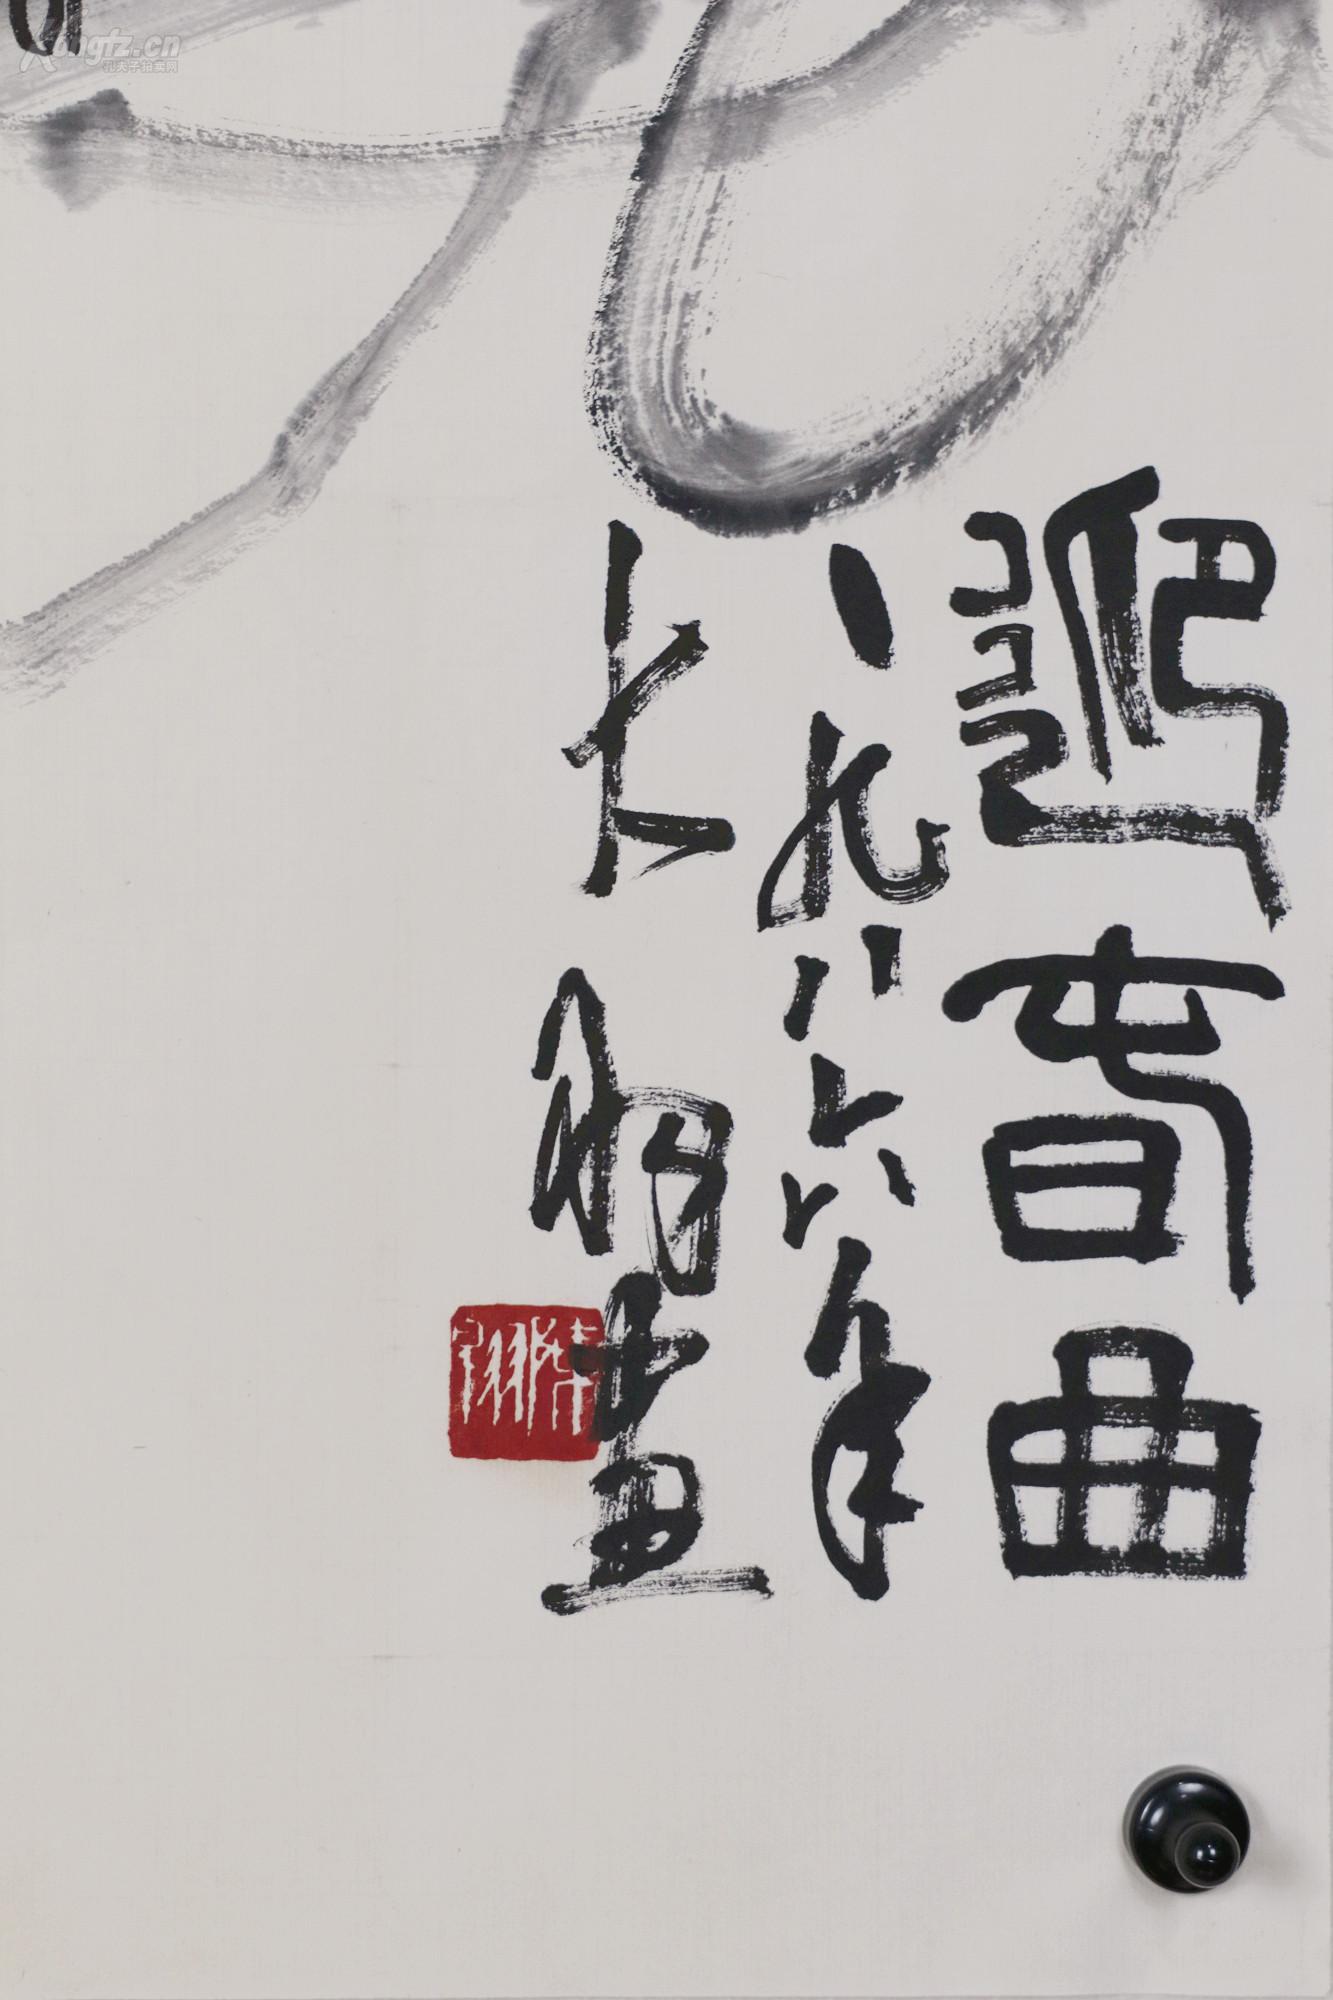 迎春曲
一九八六年
大羽画
kongfz.cn
孔夫子拍卖网